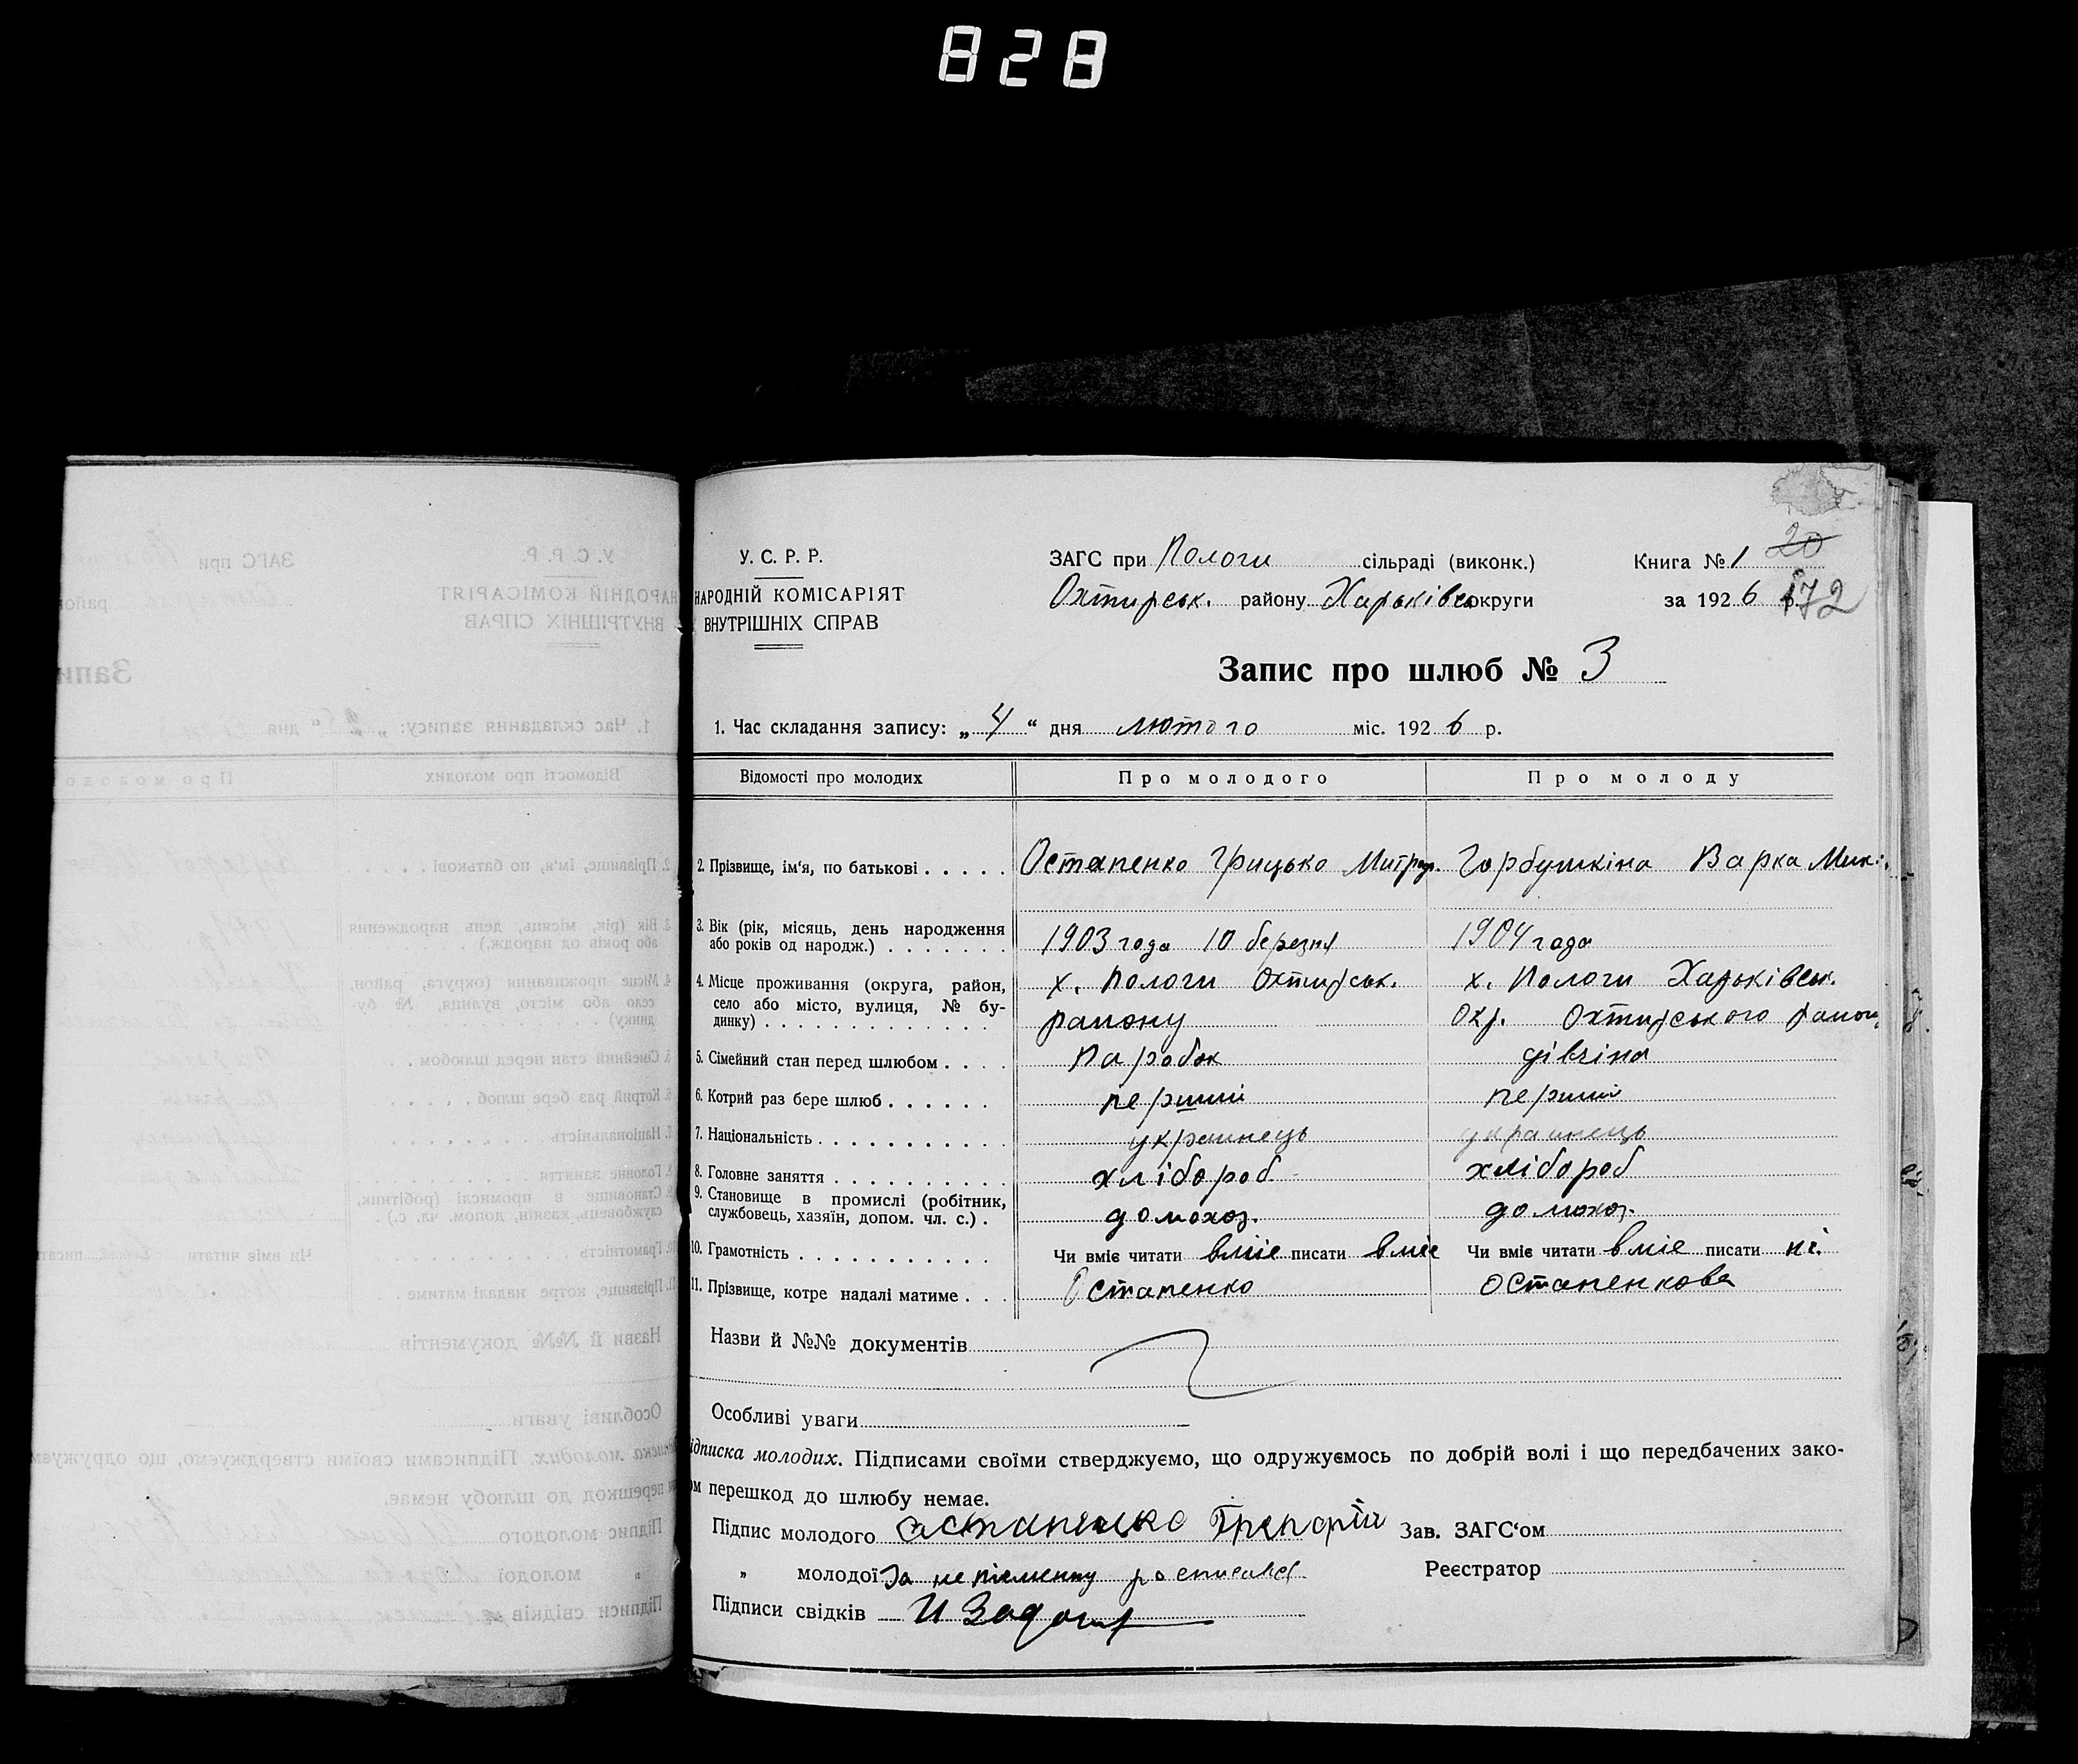 828
У. С. Р. Р.
НАРОДНІЙ КОМІСАРІЯТ
ВНУТРІШНІХ СПРАВ
ЗАГС при Пологи сільраді (виконк.)
Охтирськ. району Харьківсь округи
Книга № 1 20
за 192 6 р. 172
Запис про шлюб № 3
1. Час складання запису: „ 4 “ дня лютого міс. 192 6 р.
Відомості про молодих Про молодого Про молоду
2. Прізвище, ім‘я, по батькові . . . . . Остапенко Грицько Митроф. Горбушкіна Варка Мик.
3. Вік (рік, місяць, день народження
або років од народж.) . . . . . . . 1903 года 10 березня 1904 года
4. Місце проживання (округа, район, х. Пологи Охтирськ. х. Пологи Харьківськ.
село або місто, вулиця, № бу-
динку) . . . . . . . . . . . . . району Окр. Охтирського району
5. Сімейний стан перед шлюбом . . . . Паробок дівчіна
6. Котрий раз бере шлюб . . . . . . перший перший
7. Національність . . . . . . . . . . . украинець украинець
8. Головне заняття . . . . . . . . . . хлібороб хлібороб
9. Становище в промислі (робітник,
службовець, хазяїн, допом. чл. с.) . домохоз. домохоз.
10. Грамотність . . . . . . . . . . . Чи вміє читати вміє писати вміє Чи вміє читати вміє писати ні.
11. Прізвище, котре надалі матиме . . . Остапенко Остапенкова
Назви й №№ документів
Особливі уваги
ідписка молодих. Підписами своїми стверджуємо, що одружуємось по добрій волі і що передбачених зако-
ом перешкод до шлюбу немає.
Підпис молодого Остапенко Грегорій Зав. ЗАГС‘ом
„ молодої За не писменну росписався Реєстратор
Підписи свідків И